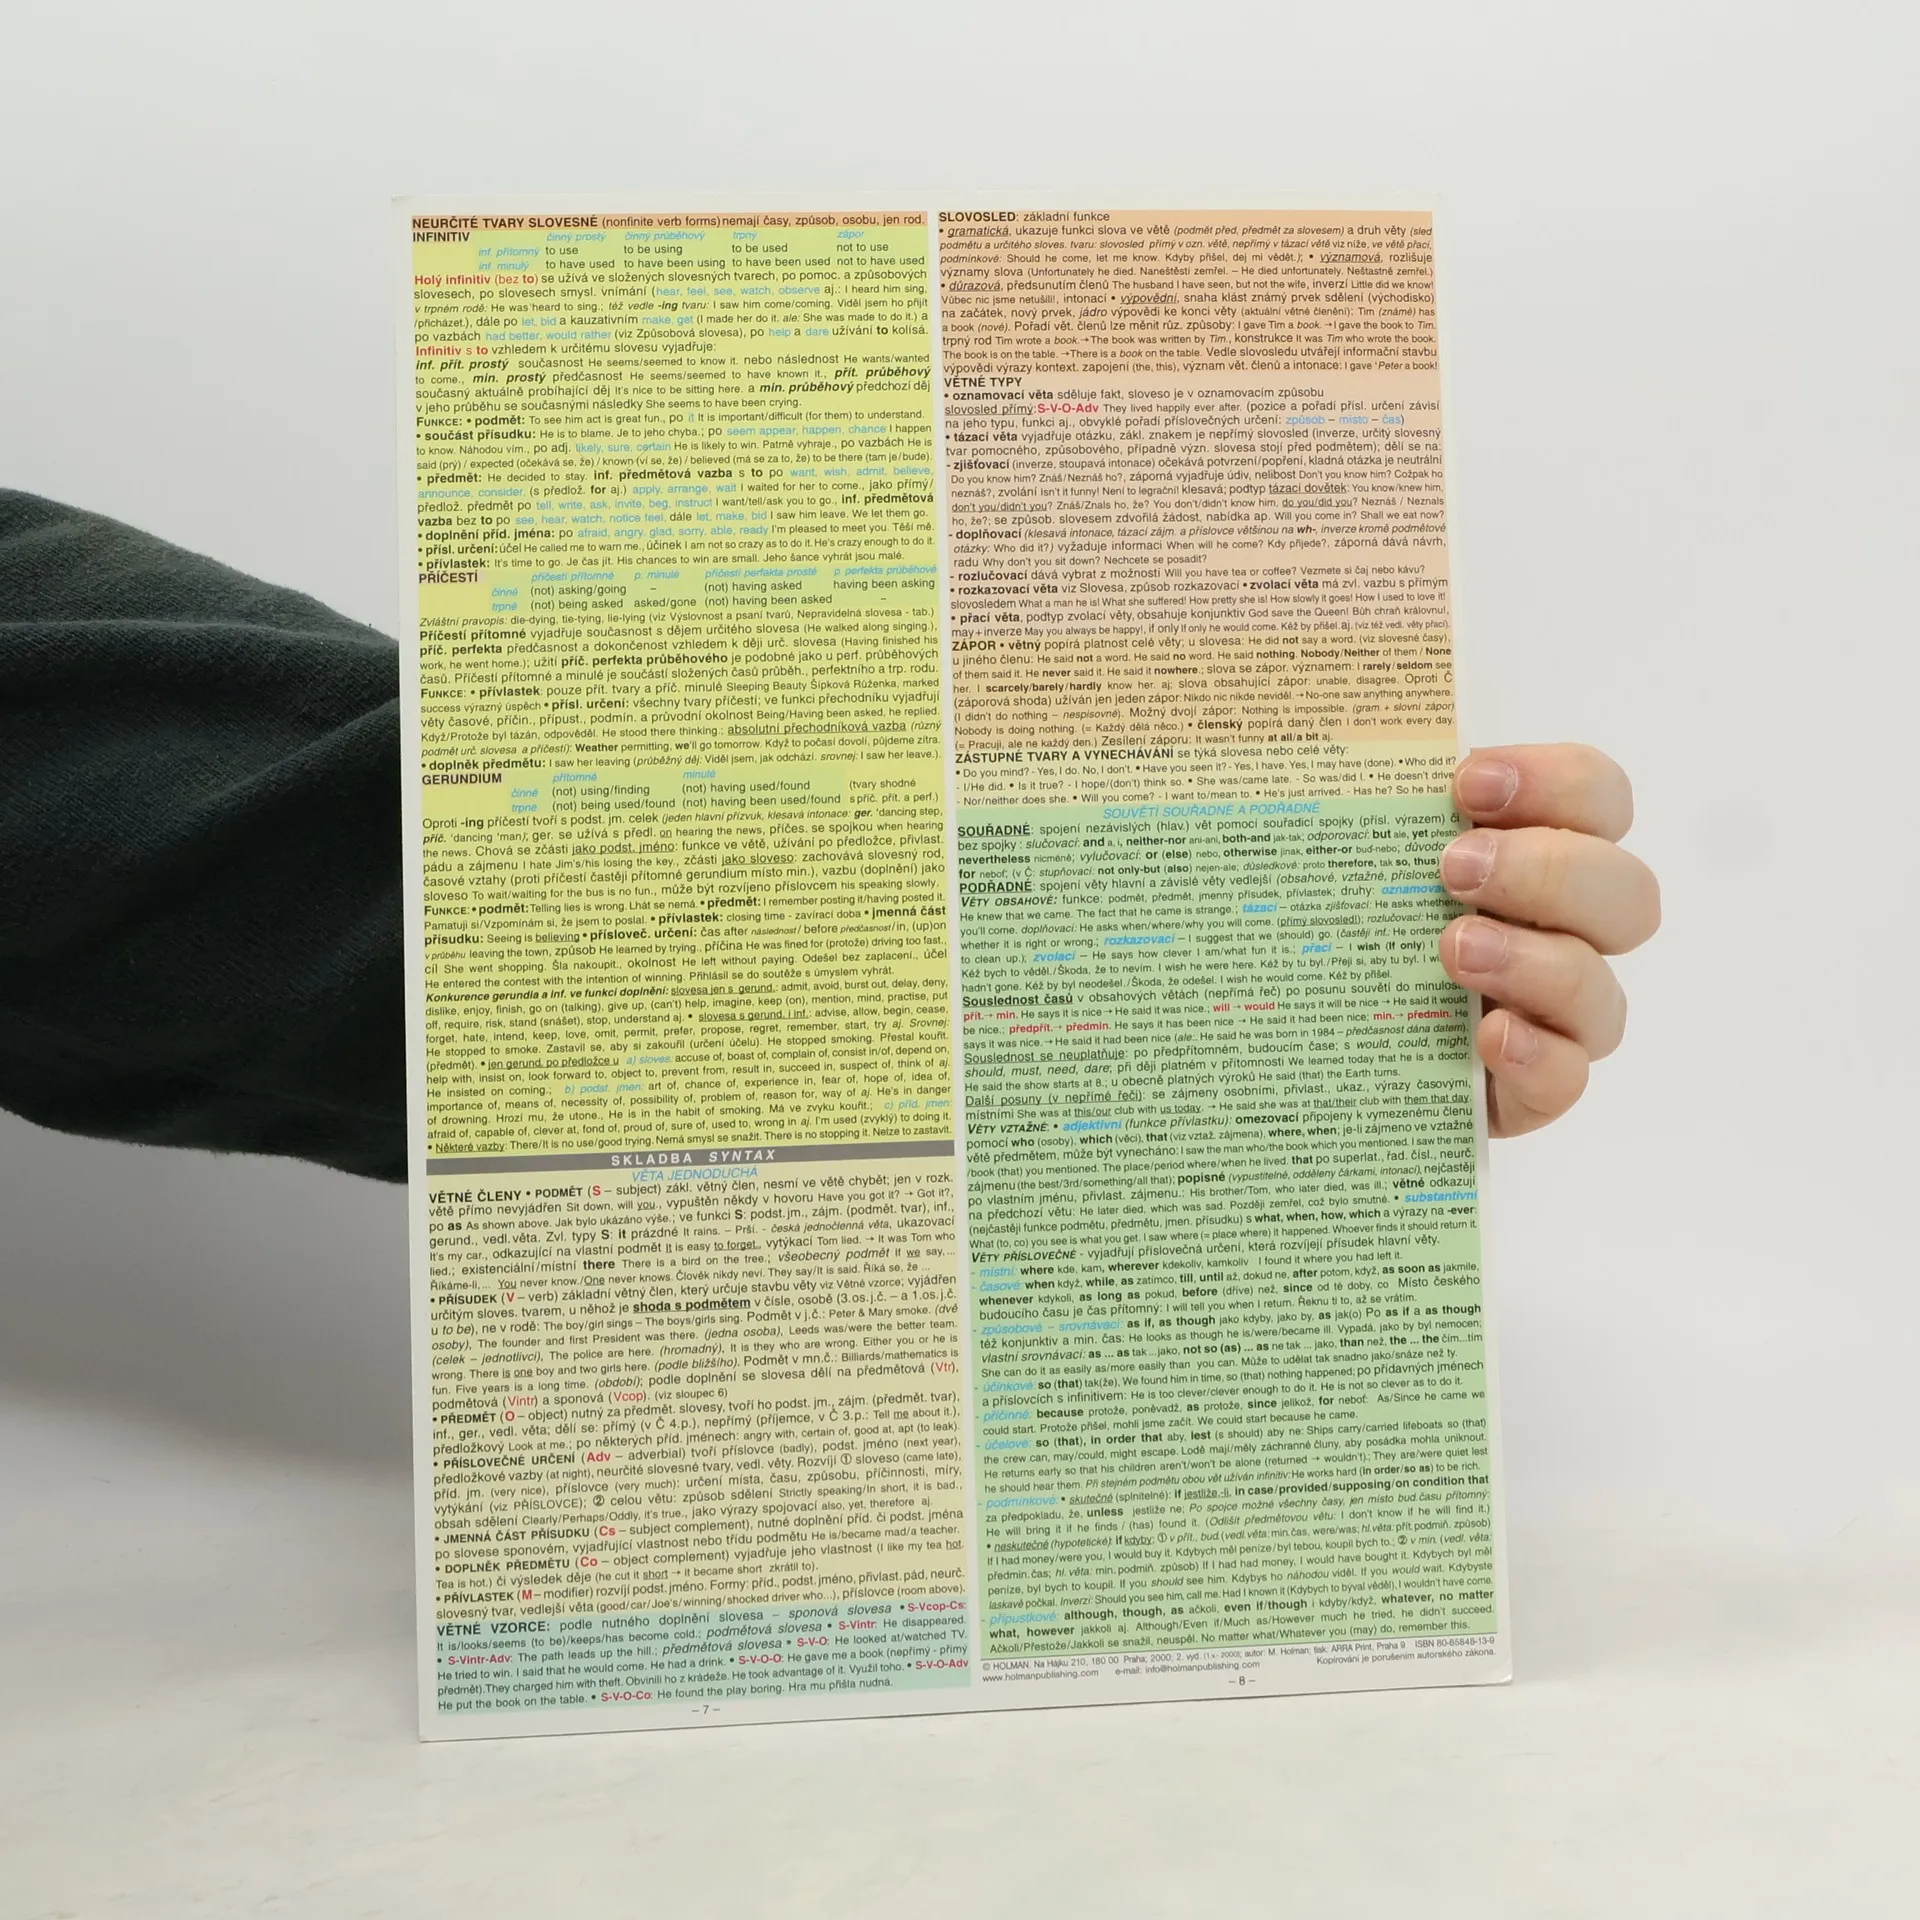 NEURČITÉ TVARY SLOVESNÉ (nonfinite verb forms) nemají časy, způsob, osobu, jen rod.
INFINITIV činný prostý činný průběhový trpný zápor
inf. přítomný to use to be using to be used not to use
inf. minulý to have used to have been using to have been used not to have used
Holý infinitiv (bez to) se užívá ve složených slovesných tvarech, po pomoc. a způsobových
slovesech, po slovesech smysl. vnímání (hear, feel, see, watch, observe aj.: I heard him sing,
v trpném rodě: He was heard to sing.; též vedle -ing tvaru: I saw him come/coming. Viděl jsem ho přijít
/přicházet.), dále po let, bid a kauzativním make, get (I made her do it. ale: She was made to do it.) a
po vazbách had better, would rather (viz Způsobová slovesa), po help a dare užívání to kolísá.
Infinitiv s to vzhledem k určitému slovesu vyjadřuje:
inf. přít. prostý současnost He seems/seemed to know it. nebo následnost He wants/wanted
to come., min. prostý předčasnost He seems/seemed to have known it., přít. průběhový
současný aktuálně probíhající děj It's nice to be sitting here. a min. průběhový předchozí děj
v jeho průběhu se současnými následky She seems to have been crying.
FUNKCE: • podmět: To see him act is great fun., po it It is important/difficult (for them) to understand.
• součást přísudku: He is to blame. Je to jeho chyba.; po seem appear, happen, chance I happen
to know. Náhodou vím., po adj. likely, sure, certain He is likely to win. Patrně vyhraje., po vazbách He is
said (prý) / expected (očekává se, že) / known (ví se, že) / believed (má se za to, že) to be there (tam je/bude).
• předmět: He decided to stay. inf. předmětová vazba s to po want, wish, admit, believe,
announce, consider, (s předlož. for aj.) apply, arrange, wait I waited for her to come., jako přímý/
předlož. předmět po tell, write, ask, invite, beg, instruct I want/tell/ask you to go., inf. předmětová
vazba bez to po see, hear, watch, notice feel, dále let, make, bid I saw him leave. We let them go.
• doplnění příd. jména: po afraid, angry, glad, sorry, able, ready I'm pleased to meet you. Těší mě.
• přísl. určení: účel He called me to warn me., účinek I am not so crazy as to do it. He's crazy enough to do it.
• přívlastek: It's time to go. Je čas jít. His chances to win are small. Jeho šance vyhrát jsou malé.
PŘÍČESTÍ příčestí přítomné p. minulé příčestí perfekta prosté p. perfekta průběhové
činné (not) asking/going – (not) having asked having been asking
trpné (not) being asked asked/gone (not) having been asked –
Zvláštní pravopis: die-dying, tie-tying, lie-lying (viz Výslovnost a psaní tvarů, Nepravidelná slovesa - tab.)
Příčestí přítomné vyjadřuje současnost s dějem určitého slovesa (He walked along singing.),
příč. perfekta předčasnost a dokončenost vzhledem k ději urč. slovesa (Having finished his
work, he went home.); užití příč. perfekta průběhového je podobné jako u perf. průběhových
časů. Příčestí přítomné a minulé je součástí složených časů průběh., perfektního a trp. rodu.
FUNKCE: • přívlastek: pouze přít. tvary a příč. minulé Sleeping Beauty Šípková Růženka, marked
success výrazný úspěch • přísl. určení: všechny tvary příčestí; ve funkci přechodníku vyjadřují
věty časové, příčin., přípust., podmín. a průvodní okolnost Being/Having been asked, he replied.
Když/Protože byl tázán, odpověděl. He stood there thinking.; absolutní přechodníková vazba (různý
podmět urč. slovesa a příčestí): Weather permitting, we'll go tomorrow. Když to počasí dovolí, půjdeme zítra.
• doplněk předmětu: I saw her leaving (průběžný děj: Viděl jsem, jak odchází. srovnej: I saw her leave.).
GERUNDIUM přítomné minulé
činné (not) using/finding (not) having used/found (tvary shodné
trpné (not) being used/found (not) having been used/found s příč. přít. a perf.)
Oproti -ing příčestí tvoří s podst. jm. celek (jeden hlavní přízvuk, klesavá intonace: ger. 'dancing step,
příč. 'dancing 'man); ger. se užívá s předl. on hearing the news, příčes. se spojkou when hearing
the news. Chová se zčásti jako podst. jméno: funkce ve větě, užívání po předložce, přivlast.
pádu a zájmenu I hate Jim's/his losing the key., zčásti jako sloveso: zachovává slovesný rod,
časové vztahy (proti příčestí častěji přítomné gerundium místo min.), vazbu (doplnění) jako
sloveso To wait/waiting for the bus is no fun., může být rozvíjeno příslovcem his speaking slowly.
FUNKCE: • podmět: Telling lies is wrong. Lhát se nemá. • předmět: I remember posting it/having posted it.
Pamatuji si/Vzpomínám si, že jsem to poslal. • přívlastek: closing time - zavírací doba • jmenná část
přísudku: Seeing is believing • příslověč. určení: čas after následnost / before předčasnost / in, (up)on
v průběhu leaving the town, způsob He learned by trying., příčina He was fined for (protože) driving too fast.,
cíl She went shopping. Šla nakoupit., okolnost He left without paying. Odešel bez zaplacení., účel
He entered the contest with the intention of winning. Přihlásil se do soutěže s úmyslem vyhrát.
Konkurence gerundia a inf. ve funkci doplnění: slovesa jen s gerund.: admit, avoid, burst out, delay, deny,
dislike, enjoy, finish, go on (talking), give up, (can't) help, imagine, keep (on), mention, mind, practise, put
off, require, risk, stand (snášet), stop, understand aj. • slovesa s gerund. i inf.: advise, allow, begin, cease,
forget, hate, intend, keep, love, omit, permit, prefer, propose, regret, remember, start, try aj. Srovnej:
He stopped to smoke. Zastavil se, aby si zakouřil (určení účelu). He stopped smoking. Přestal kouřit.
(předmět). • jen gerund. po předložce u a) sloves: accuse of, boast of, complain of, consist in/of, depend on,
help with, insist on, look forward to, object to, prevent from, result in, succeed in, suspect of, think of aj.
He insisted on coming.; b) podst. jmen: art of, chance of, experience in, fear of, hope of, idea of,
importance of, means of, necessity of, possibility of, problem of, reason for, way of aj. He's in danger
of drowning. Hrozí mu, že utone., He is in the habit of smoking. Má ve zvyku kouřit.; c) příd. jmen:
afraid of, capable of, clever at, fond of, proud of, sure of, used to, wrong in aj. I'm used (zvyklý) to doing it.
• Některé vazby: There/It is no use/good trying. Nemá smysl se snažit. There is no stopping it. Nelze to zastavit.
SKLADBA SYNTAX
VĚTA JEDNODUCHÁ
VĚTNÉ ČLENY • PODMĚT (S – subject) zákl. větný člen, nesmí ve větě chybět; jen v rozk.
větě přímo nevyjádřen Sit down, will you., vypuštěn někdy v hovoru Have you got it? → Got it?,
po as As shown above. Jak bylo ukázáno výše.; ve funkci S: podst. jm., zájm. (podmět. tvar), inf.,
gerund., vedl. věta. Zvl. typy S: it prázdné It rains. – Prší. - česká jednočlenná věta, ukazovací
It's my car., odkazující na vlastní podmět It is easy to forget., vytýkací Tom lied. → It was Tom who
lied.; existenciální/místní there There is a bird on the tree.; všeobecný podmět If we say,...
Říkáme-li,... You never know./One never knows. Člověk nikdy neví. They say/It is said. Říká se, že ...
• PŘÍSUDEK (V – verb) základní větný člen, který určuje stavbu věty viz Větné vzorce; vyjádřen
určitým sloves. tvarem, u něhož je shoda s podmětem v čísle, osobě (3.os.j.č. – a 1.os.j.č.
u to be), ne v rodě: The boy/girl sings – The boys/girls sing. Podmět v j.č.: Peter & Mary smoke. (dvě
osoby), The founder and first President was there. (jedna osoba), Leeds was/were the better team.
(celek – jednotlivci), The police are here. (hromadný), It is they who are wrong. Either you or he is
wrong. There is one boy and two girls here. (podle bližšího). Podmět v mn.č.: Billiards/mathematics is
fun. Five years is a long time. (období); podle doplnění se slovesa dělí na předmětová (Vtr),
podmětová (Vintr) a sponová (Vcop). (viz sloupec 6)
• PŘEDMĚT (O – object) nutný za předmět. slovesy, tvoří ho podst. jm., zájm. (předmět. tvar),
inf., ger., vedl. věta; dělí se: přímý (v Č 4.p.), nepřímý (příjemce, v Č 3.p.: Tell me about it.),
předložkový Look at me.; po některých příd. jménech: angry with, certain of, good at, apt (to leak).
• PŘÍSLOVEČNÉ URČENÍ (Adv – adverbial) tvoří příslovce (badly), podst. jméno (next year),
předložkové vazby (at night), neurčité slovesné tvary, vedl. věty. Rozvíjí ① sloveso (came late),
příd. jm. (very nice), příslovce (very much): určení místa, času, způsobu, příčinnosti, míry,
vytýkání (viz PŘÍSLOVCE); ② celou větu: způsob sdělení Strictly speaking/In short, it is bad.,
obsah sdělení Clearly/Perhaps/Oddly, it's true., jako výrazy spojovací also, yet, therefore aj.
• JMENNÁ ČÁST PŘÍSUDKU (Cs – subject complement), nutné doplnění příd. či podst. jména
po slovese sponovém, vyjadřující vlastnost nebo třídu podmětu He is/became mad/a teacher.
• DOPLNĚK PŘEDMĚTU (Co – object complement) vyjadřuje jeho vlastnost (I like my tea hot.
Tea is hot.) či výsledek děje (he cut it short → it became short zkrátil to).
• PŘÍVLASTEK (M – modifier) rozvíjí podst. jméno. Formy: příd., podst. jméno, přivlast. pád, neurč.
slovesný tvar, vedlejší věta (good/car/Joe's/winning/shocked driver who...), příslovce (room above).
VĚTNÉ VZORCE: podle nutného doplnění slovesa – sponová slovesa • S-Vcop-Cs:
It is/looks/seems (to be)/keeps/has become cold.; podmětová slovesa • S-Vintr: He disappeared.
• S-Vintr-Adv: The path leads up the hill.; předmětová slovesa • S-V-O: He looked at/watched TV.
He tried to win. I said that he would come. He had a drink. • S-V-O-O: He gave me a book (nepřímý - přímý
předmět). They charged him with theft. Obvinili ho z krádeže. He took advantage of it. Využil toho. • S-V-O-Adv
He put the book on the table. • S-V-O-Co: He found the play boring. Hra mu přišla nudna.
– 7 –
SLOVOSLED: základní funkce
• gramatická, ukazuje funkci slova ve větě (podmět před, předmět za slovesem) a druh věty (sled
podmětu a určitého sloves. tvaru: slovosled přímý v ozn. větě, nepřímý v tázací větě viz níže, ve větě přací,
podmínkové: Should he come, let me know. Kdyby přišel, dej mi vědět.); • významová, rozlišuje
významy slova (Unfortunately he died. Naneštěstí zemřel. – He died unfortunately. Nešťastně zemřel.)
• důrazová, předsunutím členů The husband I have seen, but not the wife, inverzí Little did we know!
Vůbec nic jsme netušili!, intonací • výpovědní, snaha klást známý prvek sdělení (východisko)
na začátek, nový prvek, jádro výpovědi ke konci věty (aktuální větné členění): Tim (známé) has
a book (nové). Pořadí vět. členů lze měnit růz. způsoby: I gave Tim a book. → I gave the book to Tim.
trpný rod Tim wrote a book. → The book was written by Tim., konstrukce It was Tim who wrote the book.
The book is on the table. → There is a book on the table. Vedle slovosledu utvářejí informační stavbu
výpovědi výrazy kontext. zapojení (the, this), význam vět. členů a intonace: I gave 'Peter a book!
VĚTNÉ TYPY
• oznamovací věta sděluje fakt, sloveso je v oznamovacím způsobu
slovosled přímý: S-V-O-Adv They lived happily ever after. (pozice a pořadí přísl. určení závisí
na jeho typu, funkci aj., obvyklé pořadí příslovečných určení: způsob – místo – čas)
• tázací věta vyjadřuje otázku, zákl. znakem je nepřímý slovosled (inverze, určitý slovesný
tvar pomocného, způsobového, případně význ. slovesa stojí před podmětem); dělí se na:
- zjišťovací (inverze, stoupavá intonace) očekává potvrzení/popření, kladná otázka je neutrální
Do you know him? Znáš/Neznáš ho?, záporná vyjadřuje údiv, nelibost Don't you know him? Cožpak ho
neznáš?, zvolání Isn't it funny! Není to legrační! klesavá; podtyp tázací dovětek: You know/knew him,
don't you/didn't you? Znáš/Znals ho, že? You don't/didn't know him, do you/did you? Neznáš / Neznals
ho, že?; se způsob. slovesem zdvořilá žádost, nabídka ap. Will you come in? Shall we eat now?
- doplňovací (klesavá intonace, tázací zájm. a příslovce většinou na wh-, inverze kromě podmětové
otázky: Who did it?) vyžaduje informaci When will he come? Kdy přijede?, záporná dává návrh,
radu Why don't you sit down? Nechcete se posadit?
- rozlučovací dává vybrat z možností Will you have tea or coffee? Vezmete si čaj nebo kávu?
• rozkazovací věta viz Slovesa, způsob rozkazovací • zvolací věta má zvl. vazbu s přímým
slovosledem What a man he is! What she suffered! How pretty she is! How slowly it goes! How I used to love it!
• přací věta, podtyp zvolací věty, obsahuje konjunktiv God save the Queen! Bůh chraň královnu!,
may + inverze May you always be happy!, if only If only he would come. Kéž by přišel. aj. (viz též vedl. věty přací).
ZÁPOR • větný popírá platnost celé věty; u slovesa: He did not say a word. (viz slovesné časy),
u jiného členu: He said not a word. He said no word. He said nothing. Nobody/Neither of them / None
of them said it. He never said it. He said it nowhere.; slova se zápor. významem: I rarely/seldom see
her. I scarcely/barely/hardly know her. aj; slova obsahující zápor: unable, disagree. Oproti Č
(záporová shoda) užíván jen jeden zápor: Nikdo nic nikde neviděl. → No-one saw anything anywhere.
(I didn't do nothing – nespisovné). Možný dvojí zápor: Nothing is impossible. (gram. + slovní zápor)
Nobody is doing nothing. (= Každý dělá něco.) • členský popírá daný člen I don't work every day.
(= Pracuji, ale ne každý den.) Zesílení záporu: It wasn't funny at all/a bit aj.
ZÁSTUPNÉ TVARY A VYNECHÁVÁNÍ se týká slovesa nebo celé věty:
• Do you mind? - Yes, I do. No, I don't. • Have you seen it? - Yes, I have. Yes, I may have (done). • Who did it?
- I/He did. • Is it true? - I hope/(don't) think so. • She was/came late. - So was/did I. • He doesn't drive
- Nor/neither does she. • Will you come? - I want to/mean to. • He's just arrived. - Has he? So he has!
SOUVĚTÍ SOUŘADNÉ A PODŘADNÉ
SOUŘADNÉ: spojení nezávislých (hlav.) vět pomocí souřadicí spojky (přísl. výrazem) či
bez spojky: slučovací: and a, i, neither-nor ani-ani, both-and jak-tak; odporovací: but ale, yet přesto
nevertheless nicméně; vylučovací: or (else) nebo, otherwise jinak, either-or buď-nebo;
for neboť; (v Č: stupňovací: not only-but (also) nejen-ale; důsledkové: proto therefore, tak so, thus)
PODŘADNÉ: spojení věty hlavní a závislé věty vedlejší (obsahové, vztažné,
VĚTY OBSAHOVÉ: funkce: podmět, předmět, jmenný přísudek, přívlastek; druhy:
He knew that we came. The fact that he came is strange.; tázací – otázka zjišťovací: He asks whether
you'll come. doplňovací: He asks when/where/why you will come. (přímý slovosled); rozlučovací: He
whether it is right or wrong.; rozkazovací – I suggest that we (should) go. (častěji inf.: He ordered
to clean up.); zvolací – He says how clever I am/what fun it is.; přací – I wish (If only) I
Kéž bych to věděl./Škoda, že to nevím. I wish he were here. Kéž by tu byl./Přeji si, aby tu byl. I
hadn't gone. Kéž by byl neodešel./Škoda, že odešel. I wish he would come. Kéž by přišel.
Souslednost časů v obsahových větách (nepřímá řeč) po posunu souvětí do
přít. → min. He says it is nice → He said it was nice.; will → would He says it will be nice → He said it would
be nice.; předpřít. → předmin. He says it has been nice → He said it had been nice; min. → předmin. He
says it was nice. → He said it had been nice (ale: He said he was born in 1984 – předčasnost dána datem).
Souslednost se neuplatňuje: po předpřítomném, budoucím čase; s would, could, might,
should, must, need, dare; při ději platném v přítomnosti We learned today that he is a doctor.
He said the show starts at 8.; u obecně platných výroků He said (that) the Earth turns.
Další posuny (v nepřímé řeči): se zájmeny osobními, přivlast., ukaz., výrazy časovými,
místními She was at this/our club with us today. → He said she was at that/their club with them that day.
VĚTY VZTAŽNÉ: • adjektivní (funkce přívlastku): omezovací připojeny k vymezenému členu
pomocí who (osoby), which (věci), that (viz vztaž. zájmena), where, when; je-li zájmeno ve vztažné
větě předmětem, může být vynecháno: I saw the man who/the book which you mentioned. I saw the man
/book (that) you mentioned. The place/period where/when he lived. that po superlat., řad. čísl., neurč.
zájmenu (the best/3rd/something/all that); popisné (vypustitelné, odděleny čárkami, intonací), nejčastěji
po vlastním jménu, přivlast. zájmenu.: His brother/Tom, who later died, was ill.; větné odkazují
na předchozí větu: He later died, which was sad. Později zemřel, což bylo smutné. • substantivní
(nejčastěji funkce podmětu, předmětu, jmen. přísudku) s what, when, how, which a výrazy na -ever:
What (to, co) you see is what you get. I saw where (= place where) it happened. Whoever finds it should return it.
VĚTY PŘÍSLOVEČNÉ - vyjadřují příslovečná určení, která rozvíjejí přísudek hlavní věty.
- místní: where kde, kam, wherever kdekoliv, kamkoliv I found it where you had left it.
- časové: when když, while, as zatímco, till, until až, dokud ne, after potom, když, as soon as jakmile,
whenever kdykoli, as long as pokud, before (dříve) než, since od té doby, co Místo českého
budoucího času je čas přítomný: I will tell you when I return. Řeknu ti to, až se vrátím.
- způsobové – srovnávací: as if, as though jako kdyby, jako by, as jak(o) Po as if a as though
též konjunktiv a min. čas: He looks as though he is/were/became ill. Vypadá, jako by byl nemocen;
vlastní srovnávací: as ... as tak ...jako, not so (as) ... as ne tak ... jako, than než, the ... the čím...tím
She can do it as easily as/more easily than you can. Může to udělat tak snadno jako/snáze než ty.
- účinkové: so (that) tak(že). We found him in time, so (that) nothing happened; po přídavných jménech
a příslovcích s infinitivem: He is too clever/clever enough to do it. He is not so clever as to do it.
- příčinné: because protože, poněvadž, as protože, since jelikož, for neboť: As/Since he came we
could start. Protože přišel, mohli jsme začít. We could start because he came.
- účelové: so (that), in order that aby, lest (s should) aby ne: Ships carry/carried lifeboats so (that)
the crew can, may/could, might escape. Lodě mají/měly záchranné čluny, aby posádka mohla uniknout.
He returns early so that his children aren't/won't be alone (returned → wouldn't).; They are/were quiet lest
he should hear them. Při stejném podmětu obou vět užíván infinitiv: He works hard (in order/so as) to be rich.
- podmínkové: • skutečné (splnitelné): if jestliže,-li, in case/provided/supposing/on condition that
za předpokladu, že, unless jestliže ne; Po spojce možné všechny časy, jen místo bud. času přítomný:
He will bring it if he finds / (has) found it. (Odlišit předmětovou větu: I don't know if he will find it.)
• neskutečné (hypotetické): if kdyby: ① v přít., bud. (vedl. věta: min. čas, were/was; hl. věta: přít. podmiň. způsob)
If I had money/were you, I would buy it. Kdybych měl peníze/byl tebou, koupil bych to.; ② v min. (vedl. věta:
předmin. čas; hl. věta: min. podmiň. způsob) If I had had money, I would have bought it. Kdybych byl měl
peníze, byl bych to koupil. If you should see him. Kdybys ho náhodou viděl. If you would wait. Kdybyste
laskavě počkal. Inverzí: Should you see him, call me. Had I known it (Kdybych to býval věděl), I wouldn't have come.
- přípustkové: although, though, as ačkoli, even if/though i kdyby/když, whatever, no matter
what, however jakkoli aj. Although/Even if/Much as/However much he tried, he didn't succeed.
Ačkoli/Přestože/Jakkoli se snažil, neuspěl. No matter what/Whatever you (may) do, remember this.
© HOLMAN, Na Hájku 210, 180 00 Praha, 2000; 2. vyd. (1.v.- 2000); autor: M. Holman; tisk: ARRA Print, Praha 9 ISBN 80-85848-13-9
www.holmanpublishing.com e-mail: info@holmanpublishing.com Kopírování je porušením autorského zákona.
– 8 –